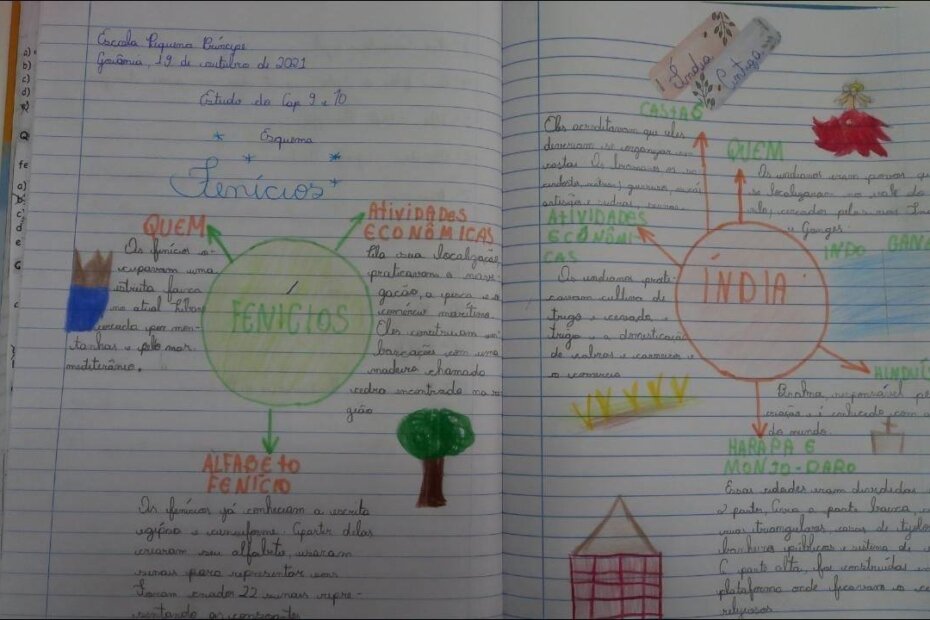 Escola Pequeno Príncipe
Goiânia, 19 de outubro de 2021
Estudo do Cap 9 e 10
Esquema
Fenícios
QUEM
Os fenícios o-
cupavam uma
estreita faixa
no atual Líbano
cercada por mon-
tanhas e pelo mar
mediterrâneo.
ATIVIDADES
ECONÔMICAS
Pela sua localização
praticavam a nave-
gação, a pesca e o
comércio marítimo.
Eles construíam em-
barcações com uma
madeira chamada
cedro encontrada na re
gião
FENÍCIOS
ALFABETO
FENÍCIO
Os fenícios já conheciam a escrita
egípcia e cuneiforme. Apartir delas
criaram seu alfabeto, usaram
sinais para representar sons
Foram criados 22 sinais repre-
sentando as consoantes
Índia Antiga
CASTAS
Eles acreditavam que eles
deveriam se organizar em
castas. Os brâmanes es
QUEM
Os indianos eram povos que
se localizavam no vale do
cercados pelos rios
e Ganges
INDO GAN
ATIVIDADES
ECONÔMI-
CAS
Os indianos prati-
cavam cultivo de
trigo e cevada e
trigo e a domesticação
de cabras e carneiros e
o comércio
ÍNDIA
HINDUÍ
Brahma, responsável pe
criação e é conhecido com a
do mundo.
HARAPA E
MONJO-DARO
Essas cidades eram divididas
2 partes,
ruas triangulares casas de tijolo
banheiros públicos e sistema de
A parte alta, foi construídas em
plataforma onde ficavam os
religiosos